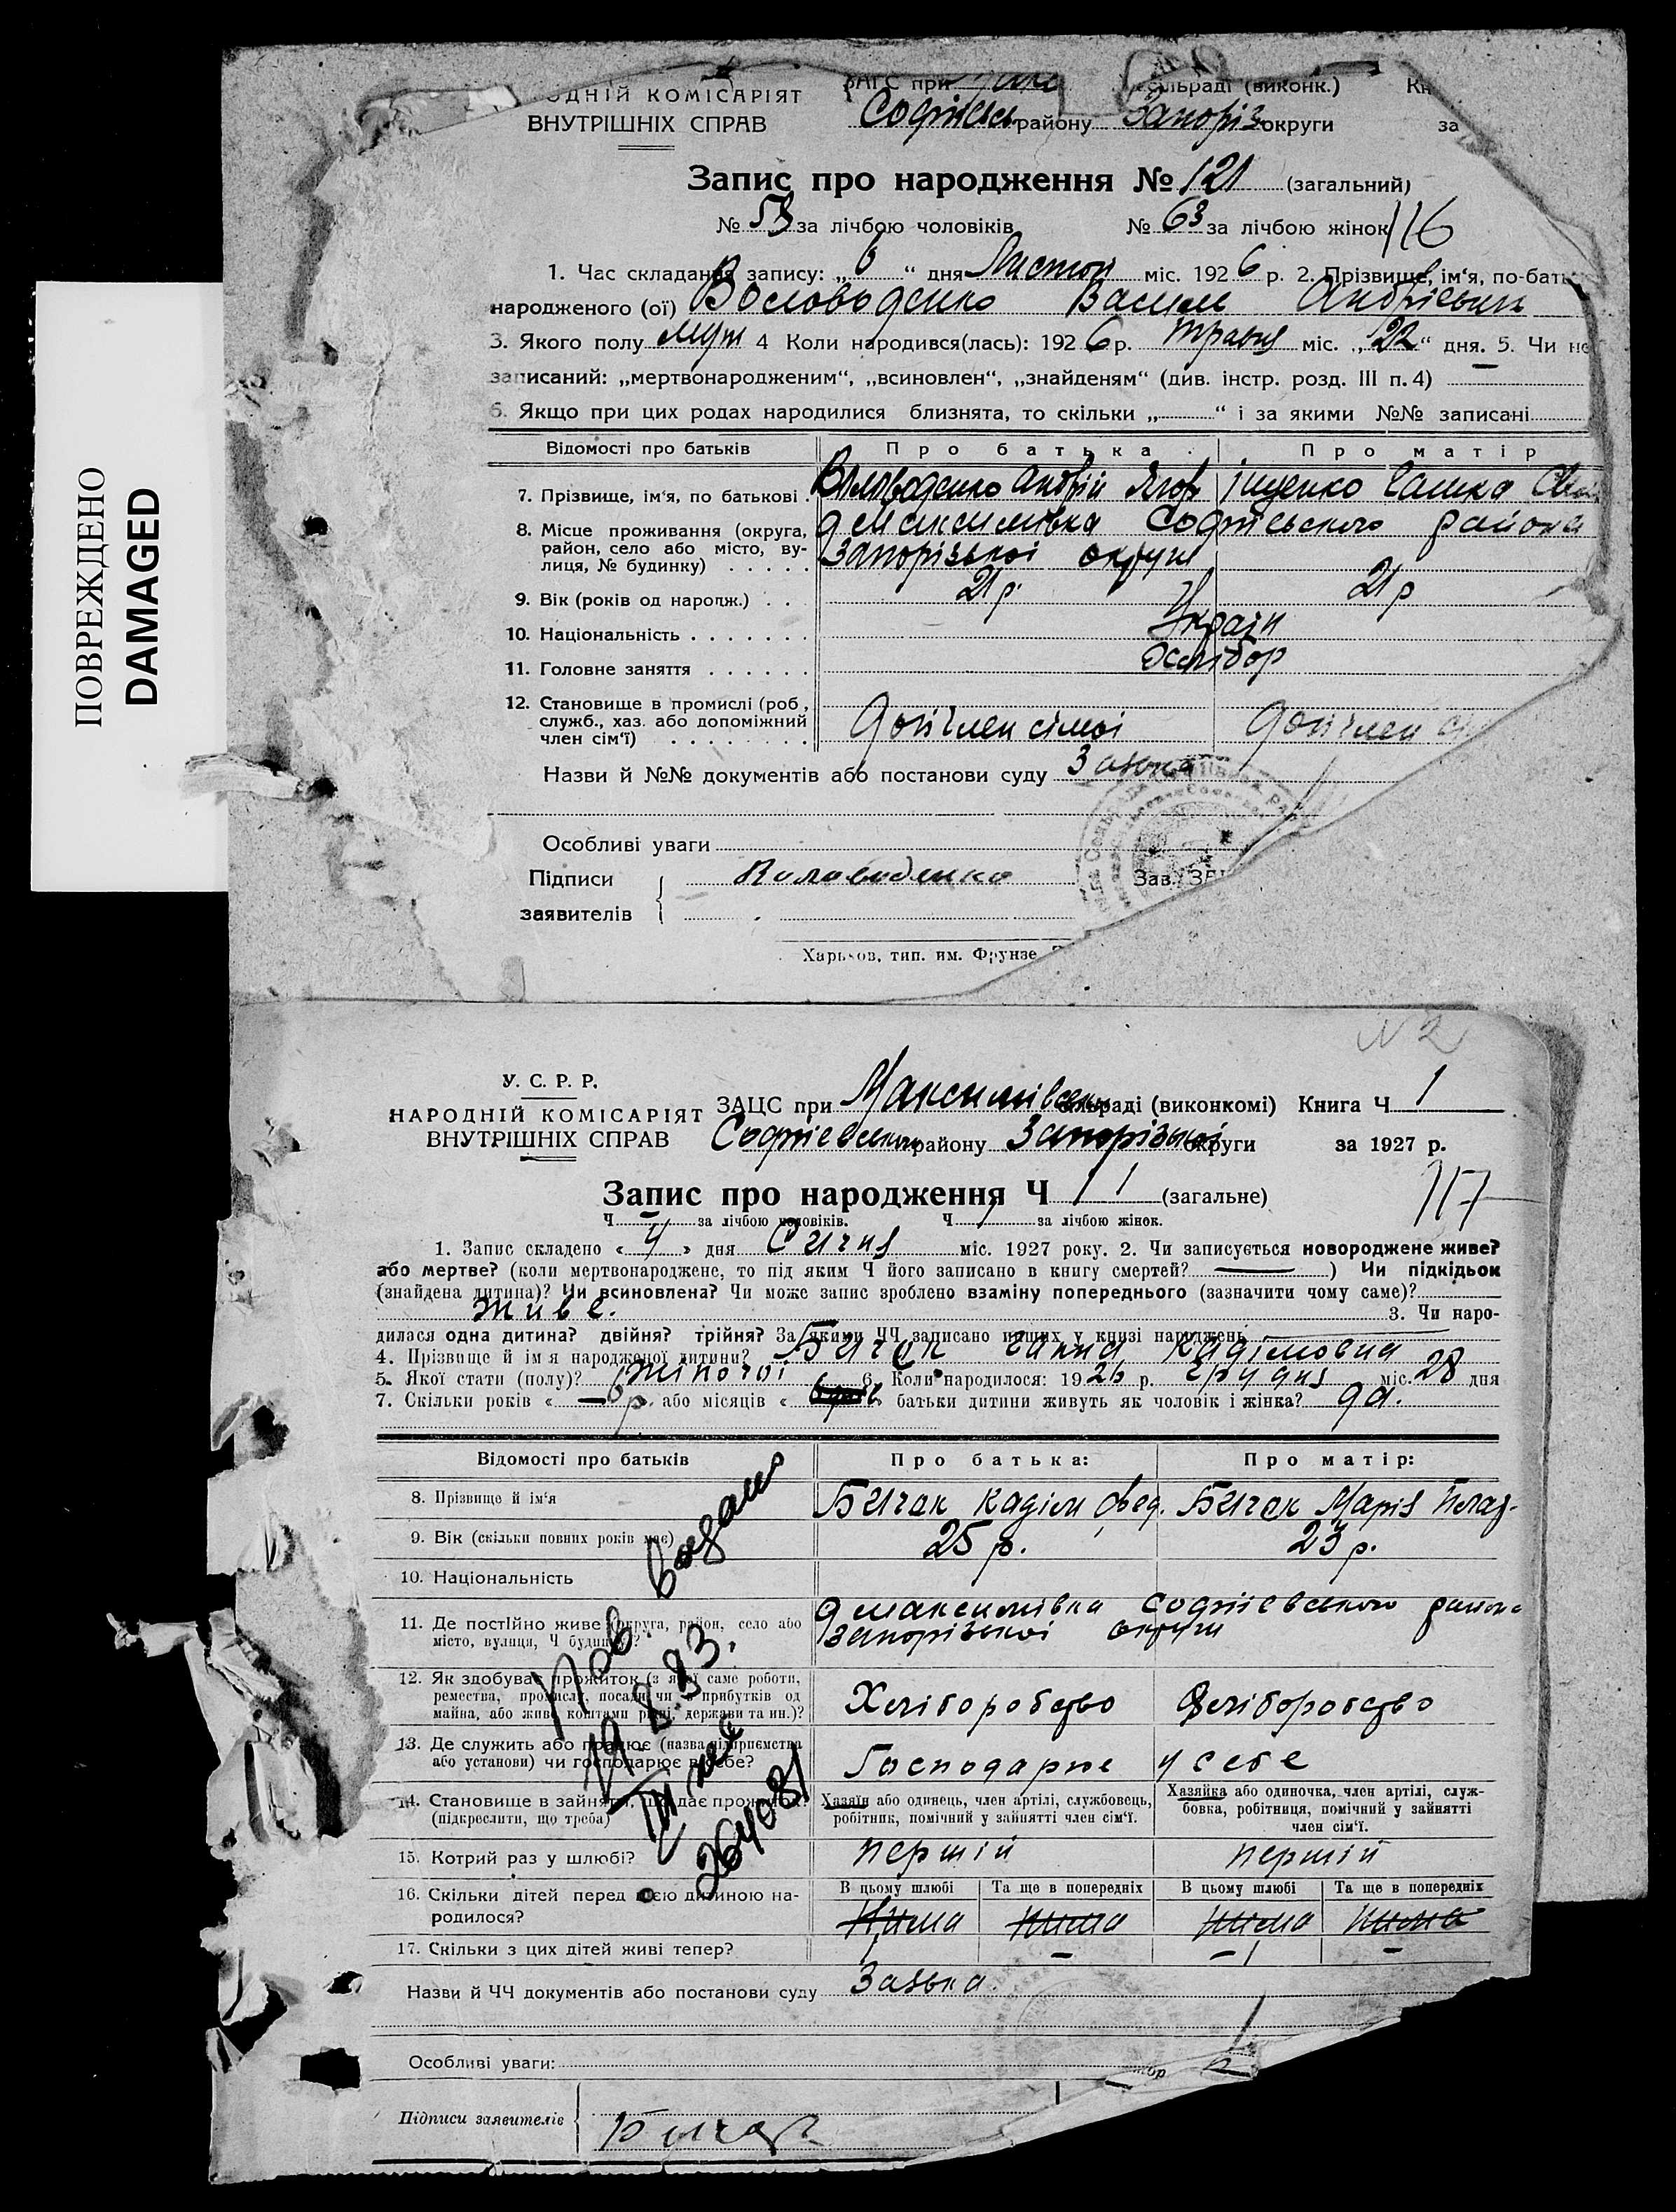 ПОВРЕЖДЕНО
DAMAGED
ОДНІЙ КОМІСАРІЯТ
ВНУТРІШНІХ СПРАВ
ЗАГС при сільраді (виконк.)
Софіївськ району Запоріз округи за
Запис про народження № 121 (загальний)
№ 53 за лічбою чоловіків № 63 за лічбою жінок 116
1. Час складання запису: „6“ дня Листоп міс. 1926 р. 2. Прізвище, ім‘я, по-бать
народженого (ої) Воловоденко Василь Андрієвич
3. Якого полу муж 4 Коли народився(лась): 1926 р. травня міс. „22“ дня. 5. Чи не
записаний: „мертвонародженим“, „всиновлен“, „знайденям“ (див. інстр. розд. III п. 4)
6. Якщо при цих родах народилися близнята, то скільки „ “ і за якими №№ записані
Відомості про батьків Про батька Про матір
7. Прізвище, ім‘я, по батькові Воловоденко Андрій Ягор Іщенко
8. Місце проживання (округа, район, село або місто, вулиця, № будинку) д Максимівка Софіевського района
Запорізької округи
9. Вік (років од народж.) 21 р. 21 р
10. Національність Україн
11. Головне заняття хлібор
12. Становище в промислі (роб., служб., хаз. або допоміжний член сім‘ї) Доп член сімої Доп член сі
Назви й №№ документів або постанови суду Заявка
Особливі уваги
Підписи заявителів Воловоденко Зав. ЗАГ
Харьков, тип. им. Фрунзе
N 2
У. С. Р. Р.
НАРОДНІЙ КОМІСАРІЯТ
ВНУТРІШНІХ СПРАВ
ЗАЦС при Максимівськ сільраді (виконкомі) Книга Ч 1
Софіевського району Запорізької округи за 1927 р.
Запис про народження Ч 1 (загальне) 117
Ч — за лічбою чоловіків. Ч 1 за лічбою жінок.
1. Запис складено « 4 » дня Січня міс. 1927 року. 2. Чи записується новороджене живе?
або мертве? (коли мертвонароджене, то під яким Ч його записано в книгу смертей? — ) Чи підкідьок
(знайдена дитина)? Чи всиновлена? Чи може запис зроблено взаміну попереднього (зазначити чому саме)?
живе. 3. Чи наро-
дилася одна дитина? двійня? трійня? За якими ЧЧ записано інших у книзі народжень
4. Прізвище й ім я народженої дитини? Бичек Ганна Кадімовна
5. Якої стати (полу)? жіночої 6. Коли народилося: 1926 р. Грудня міс. 28 дня
7. Скільки років « р. або місяців « » батьки дитини живуть як чоловік і жінка? да.
Відомості про батьків Про батька: Про матір:
8. Прізвище й ім‘я Бичек Кадім Фед. Бичек Марія
9. Вік (скільки повних років має) 25 р. 23 р.
10. Національність
11. Де постійно живе (округа, район, село або місто, вулиця, Ч будинку)? д Максимівка Софіевського района
Запорізької округи
12. Як здобуває прожиток (з якої саме роботи, ремества, промислу, посади чи з прибутків од майна, або живе коштами рідні, держави та ин.)? Хліборобство Хліборобство
13. Де служить або працює (назва підприємства або установи) чи господарює в себе? Господарює у себе
14. Становище в зайнятті, що дає прожиток? (підкреслити, що треба) Хазяїн або одинець, член артілі, службовець, робітник, помічний у зайнятті член сім‘ї. Хазяйка або одиночка, член артілі, службовка, робітниця, помічний у зайнятті член сім‘ї.
15. Котрий раз у шлюбі? першій першій
16. Скільки дітей перед цією дитиною народилося? В цьому шлюбі Та ще в попередніх В цьому шлюбі Та ще в попередніх
Нима нима нима нима
17. Скільки з цих дітей живі тепер? 1 — 1 —
Назви й ЧЧ документів або постанови суду Заявка.
Особливі уваги:
Підписи заявителів Бичек
Пов. выдано
264081